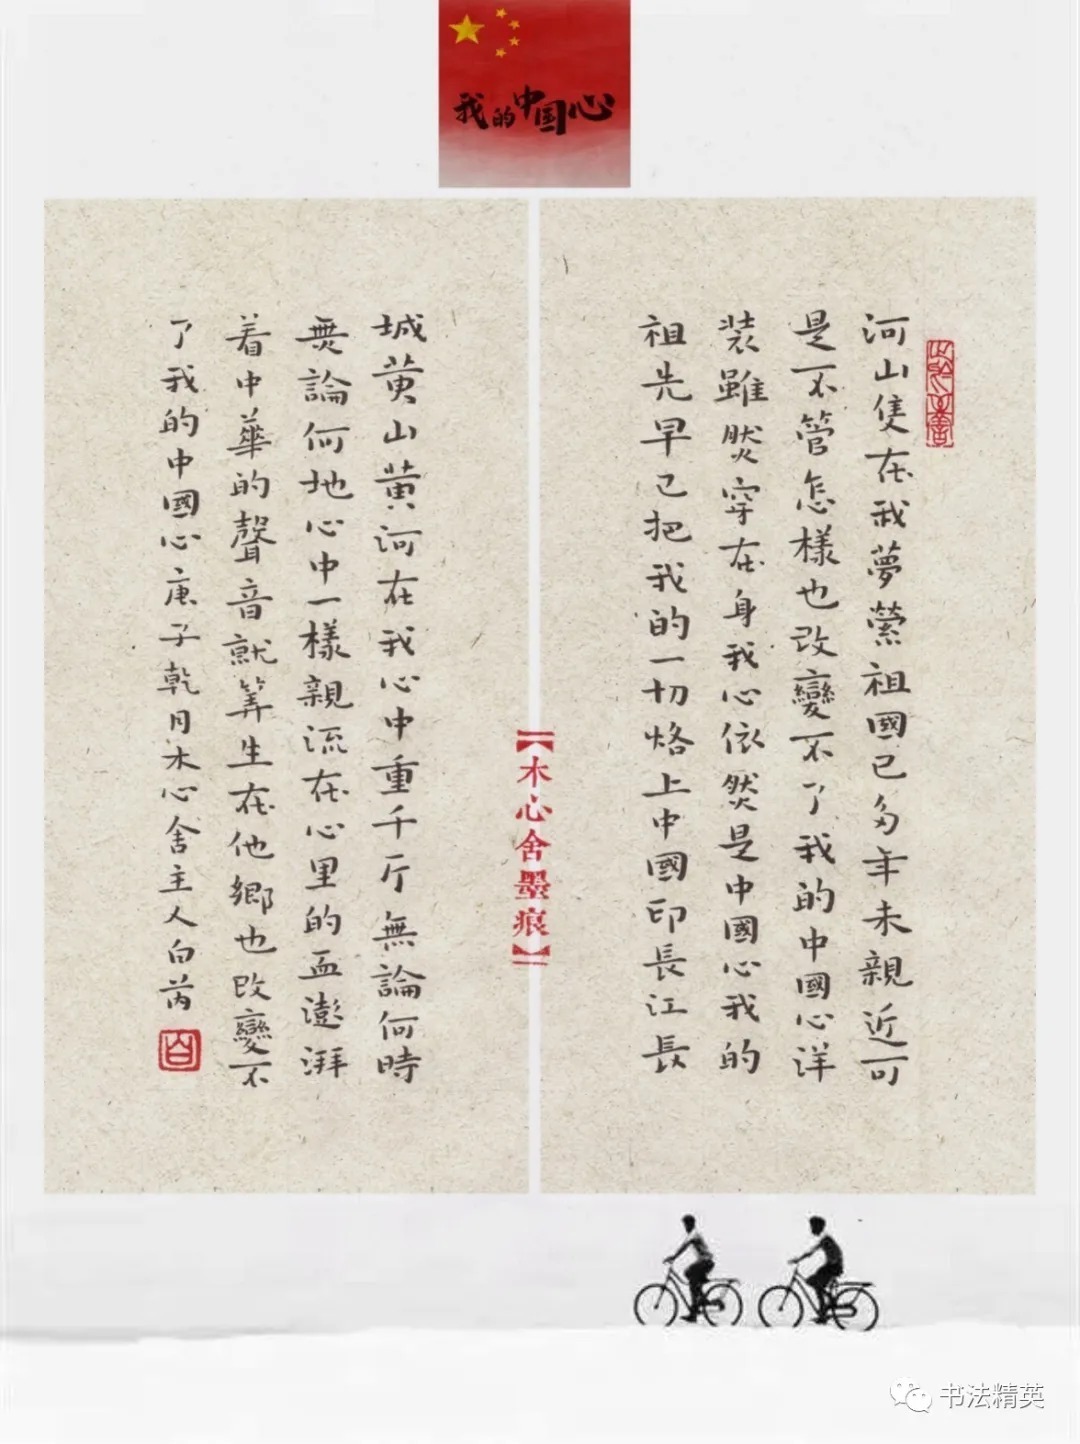 我的中国心
河山隻在我夢縈祖國已多年未親近可
是不管怎樣也改變不了我的中國心洋
装雖然穿在身我心依然是中國心我的
祖先早已把我的一切烙上中國印長江長
【木心舍墨痕】
城黄山黄河在我心中重千斤無論何時
無論何地心中一樣親流在心里的血澎湃
着中華的聲音就算生在他鄉也改變不
了我的中國心庚子乾月木心舍主人白芮
书法精英